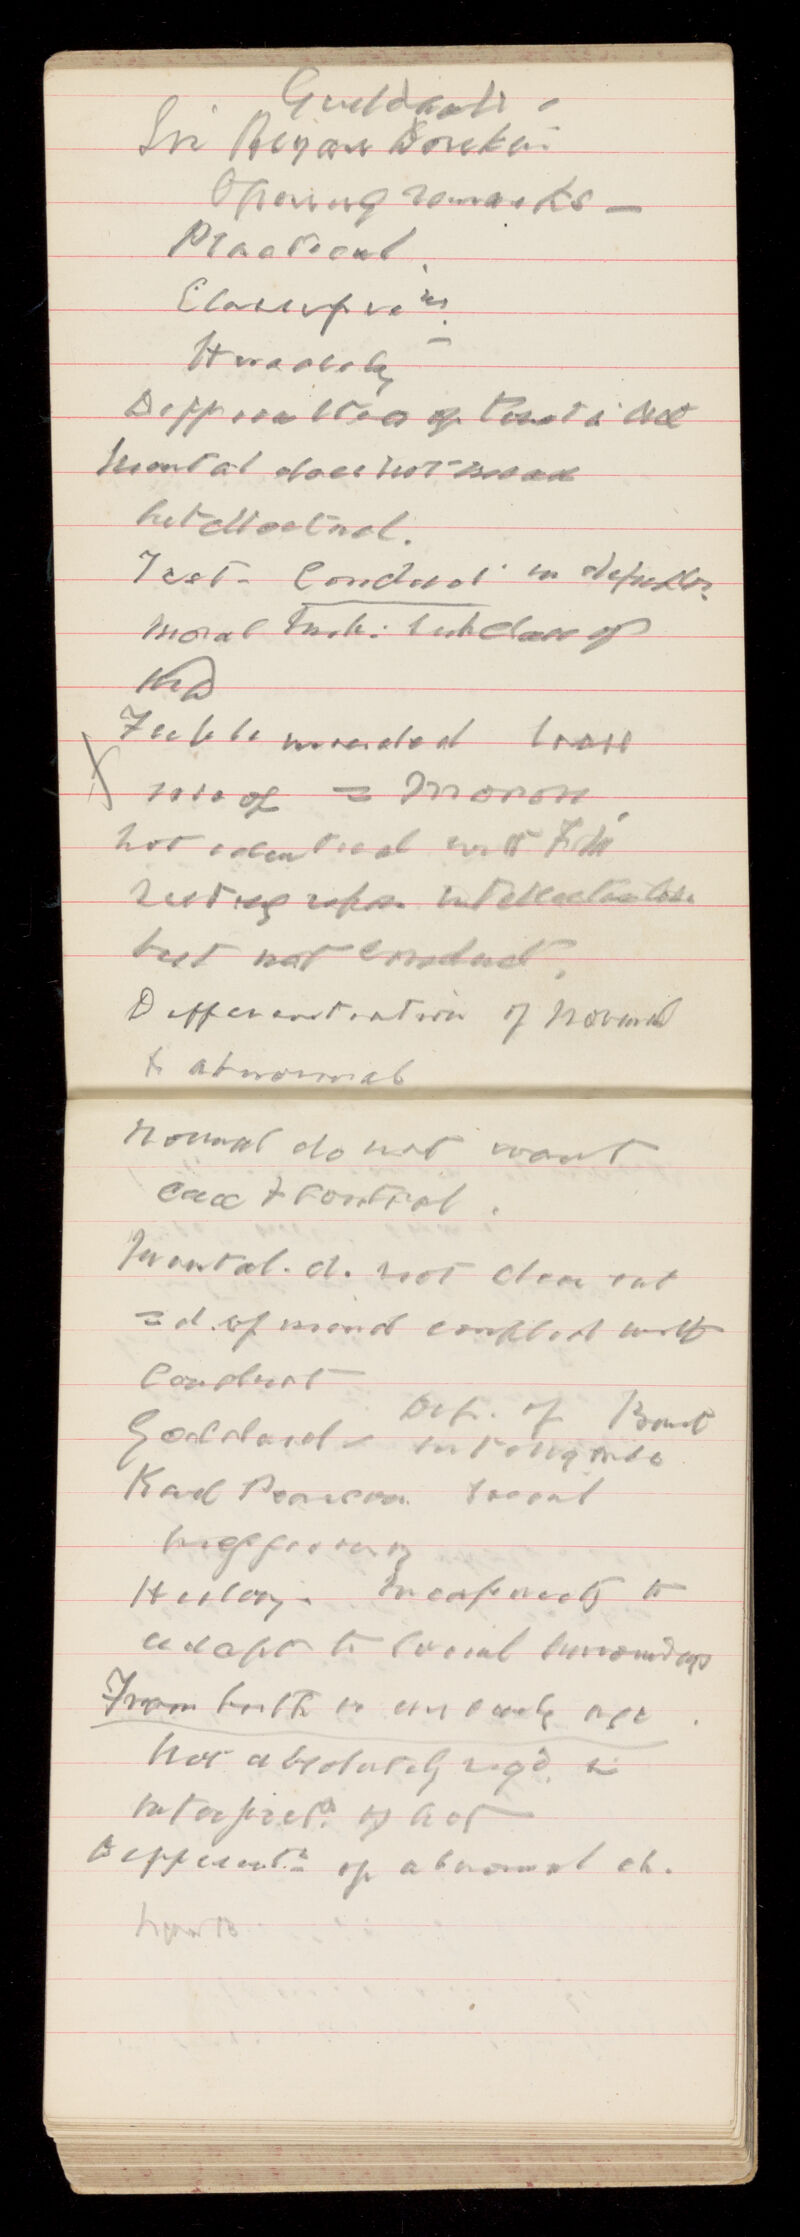 Guildhall -
Sir Bryan Donkin
Opening remarks —
Practical.
Classific'n.
Heredity
Difficulties of
Mental does not mean
intellectual.
Test - Conduct in
Moral Imb: subclass of
MD
Feeble minded
use of = Moron,
not identical with FM
resting upon
but not conduct.
Differentiation of normal
& abnormal
Normal do not want
care & control.
Mental. d. not clear cut
= d. of mind coupled with
Conduct
Def. of Binet
Goddard - intelligence
Karl Pearson Social
inefficiency
Healy. Incapacity to
adapt to social surroundings
From birth or an early age.
Not absolutely req'd. in
interpret'n of Act
Different'n of abnormal ch.